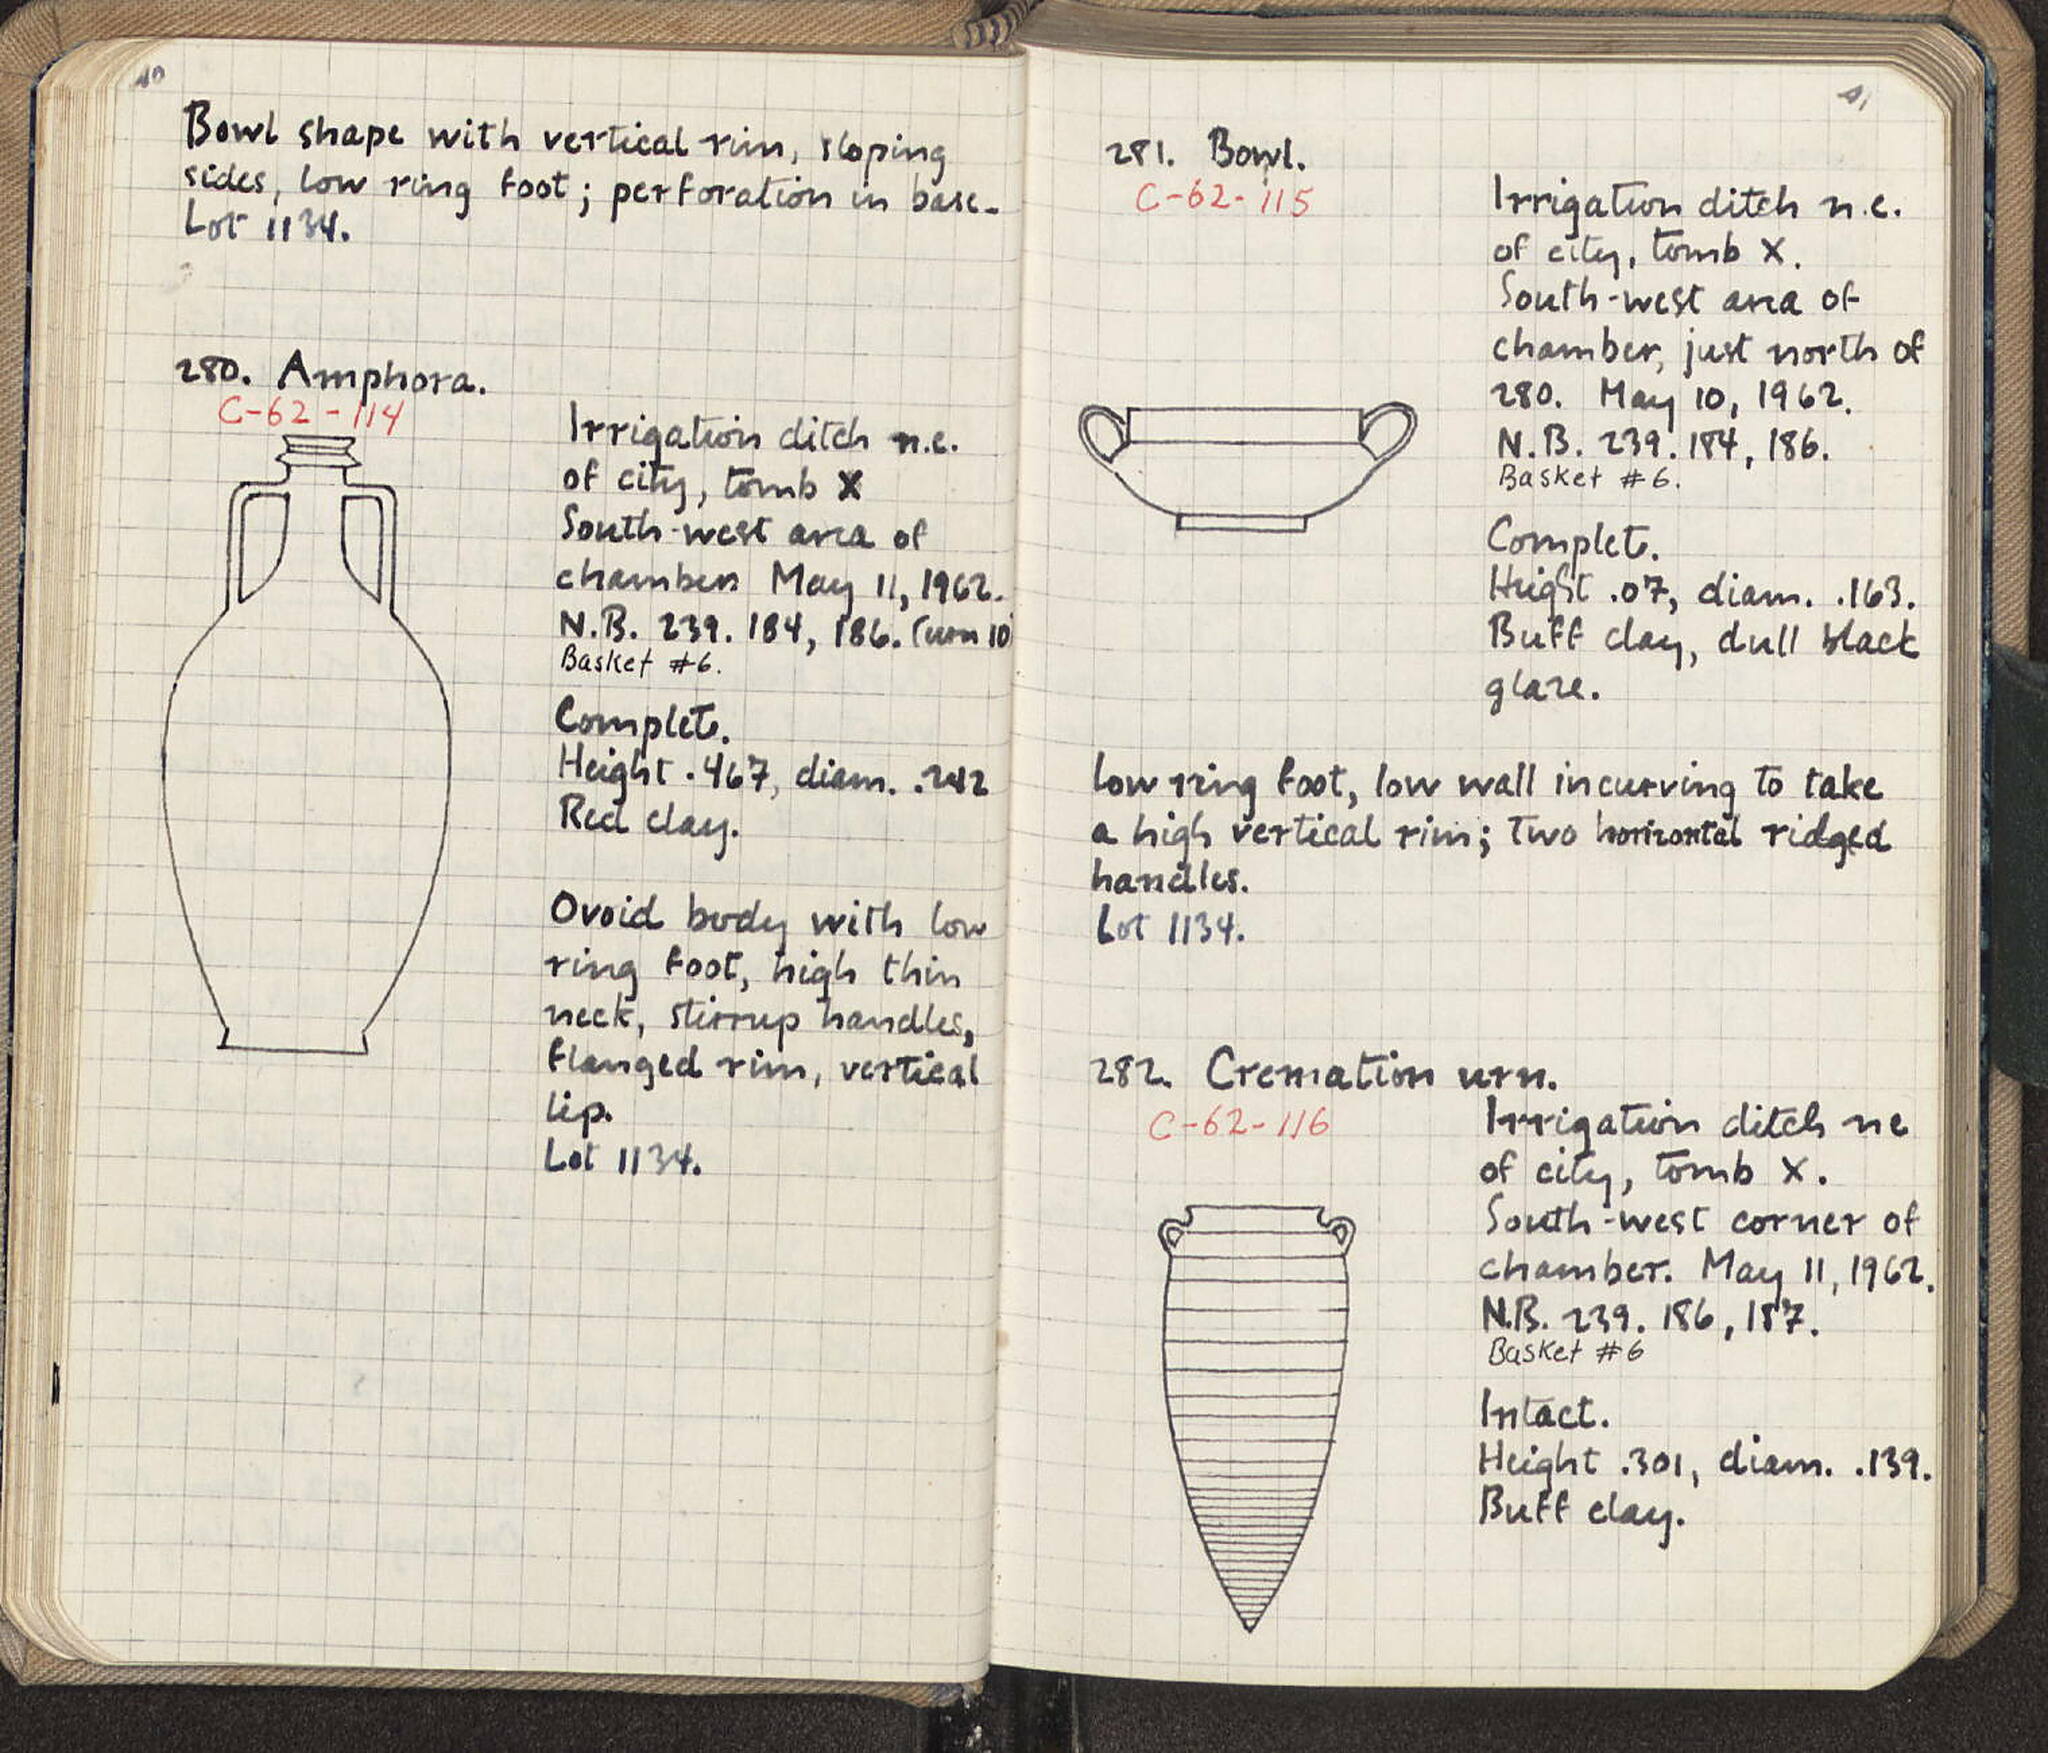 40
Bowl shape with vertical rim, sloping
sides, low ring foot; perforation in base.
Lot 1134.
280. Amphora.
C-62-114
Irrigation ditch n.e.
of city, tomb X
South-west area of
chamber. May 11, 1962.
N.B. 239. 184, 186. (urn 10)
Basket #6.
Complete.
Height .467, diam. .242
Red clay.
Ovoid body with low
ring foot, high thin
neck, stirrup handles,
flanged rim, vertical
lip.
Lot 1134.
41
281. Bowl.
C-62-115
Irrigation ditch n.e.
of city, tomb X.
South-west area of
chamber, just north of
280. May 10, 1962.
N.B. 239. 184, 186.
Basket #6.
Complete.
Height .07, diam. .163.
Buff clay, dull black
glaze.
Low ring foot, low wall incurving to take
a high vertical rim; two horizontal ridged
handles.
Lot 1134.
282. Cremation urn.
C-62-116
Irrigation ditch ne
of city, tomb X.
South-west corner of
chamber. May 11, 1962.
N.B. 239. 186, 187.
Basket #6
Intact.
Height .301, diam. .139.
Buff clay.